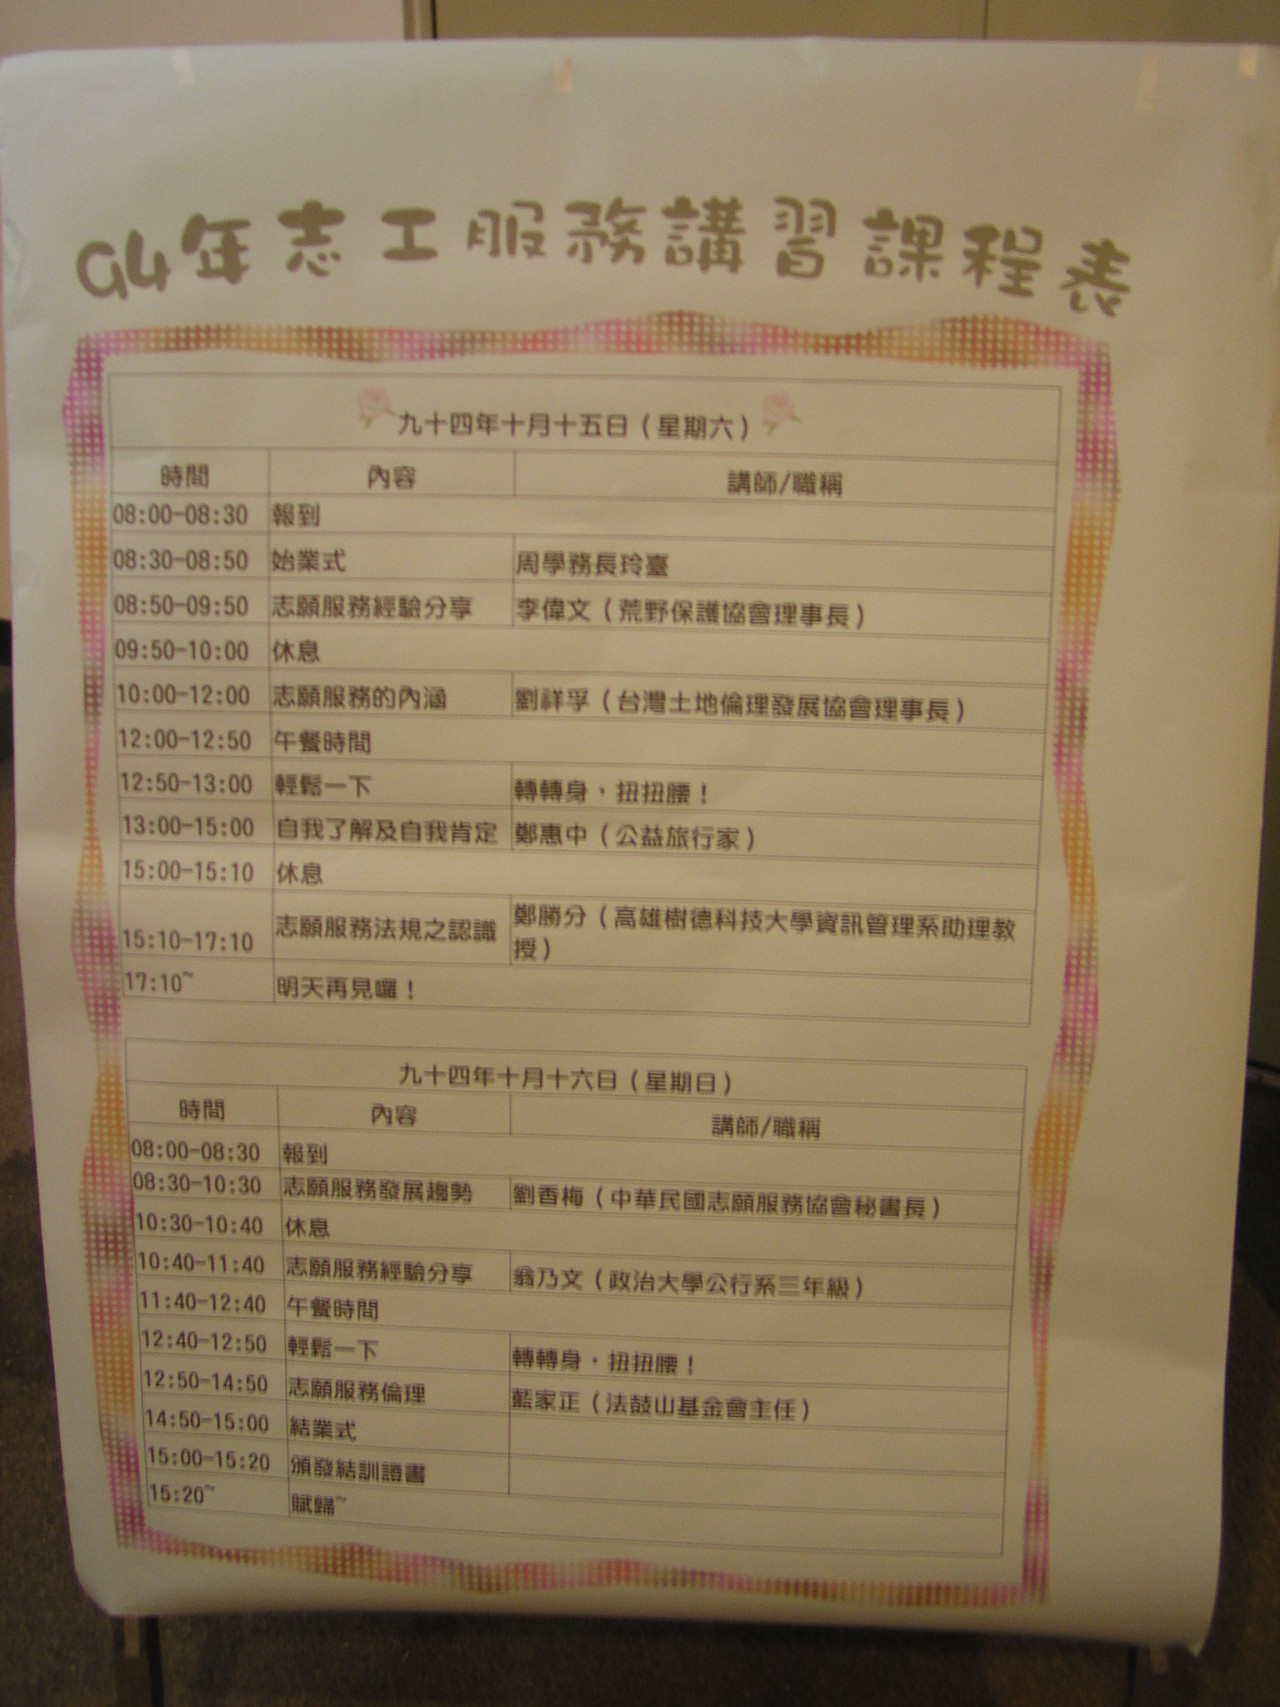 94年志工服務講習課程表
九十四年十月十五日（星期六）
時間 內容 講師/職稱
08:00-08:30 報到
08:30-08:50 始業式 周學務長玲臺
08:50-09:50 志願服務經驗分享 李偉文（荒野保護協會理事長）
09:50-10:00 休息
10:00-12:00 志願服務的內涵 劉祥孚（台灣土地倫理發展協會理事長）
12:00-12:50 午餐時間
12:50-13:00 輕鬆一下 轉轉身，扭扭腰！
13:00-15:00 自我了解及自我肯定 鄭惠中（公益旅行家）
15:00-15:10 休息
15:10-17:10 志願服務法規之認識 鄭勝分（高雄樹德科技大學資訊管理系助理教
授）
17:10~ 明天再見囉！
九十四年十月十六日（星期日）
時間 內容 講師/職稱
08:00-08:30 報到
08:30-10:30 志願服務發展趨勢 劉香梅（中華民國志願服務協會秘書長）
10:30-10:40 休息
10:40-11:40 志願服務經驗分享 翁乃文（政治大學公行系三年級）
11:40-12:40 午餐時間
12:40-12:50 輕鬆一下 轉轉身，扭扭腰！
12:50-14:50 志願服務倫理 藍家正（法鼓山基金會主任）
14:50-15:00 結業式
15:00-15:20 頒發結訓證書
15:20~ 賦歸~